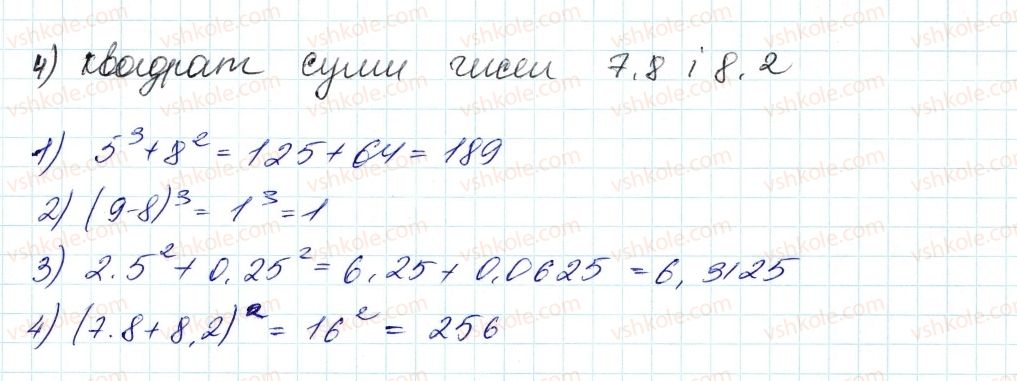 4) квадрат суми чисел 7,8 і 8,2
1) 5³+8²=125+64=189
2) (9-8)³=1³=1
3) 2.5²+0,25²=6,25+0,0625=6,3125
4) (7.8+8,2)²=16²=256